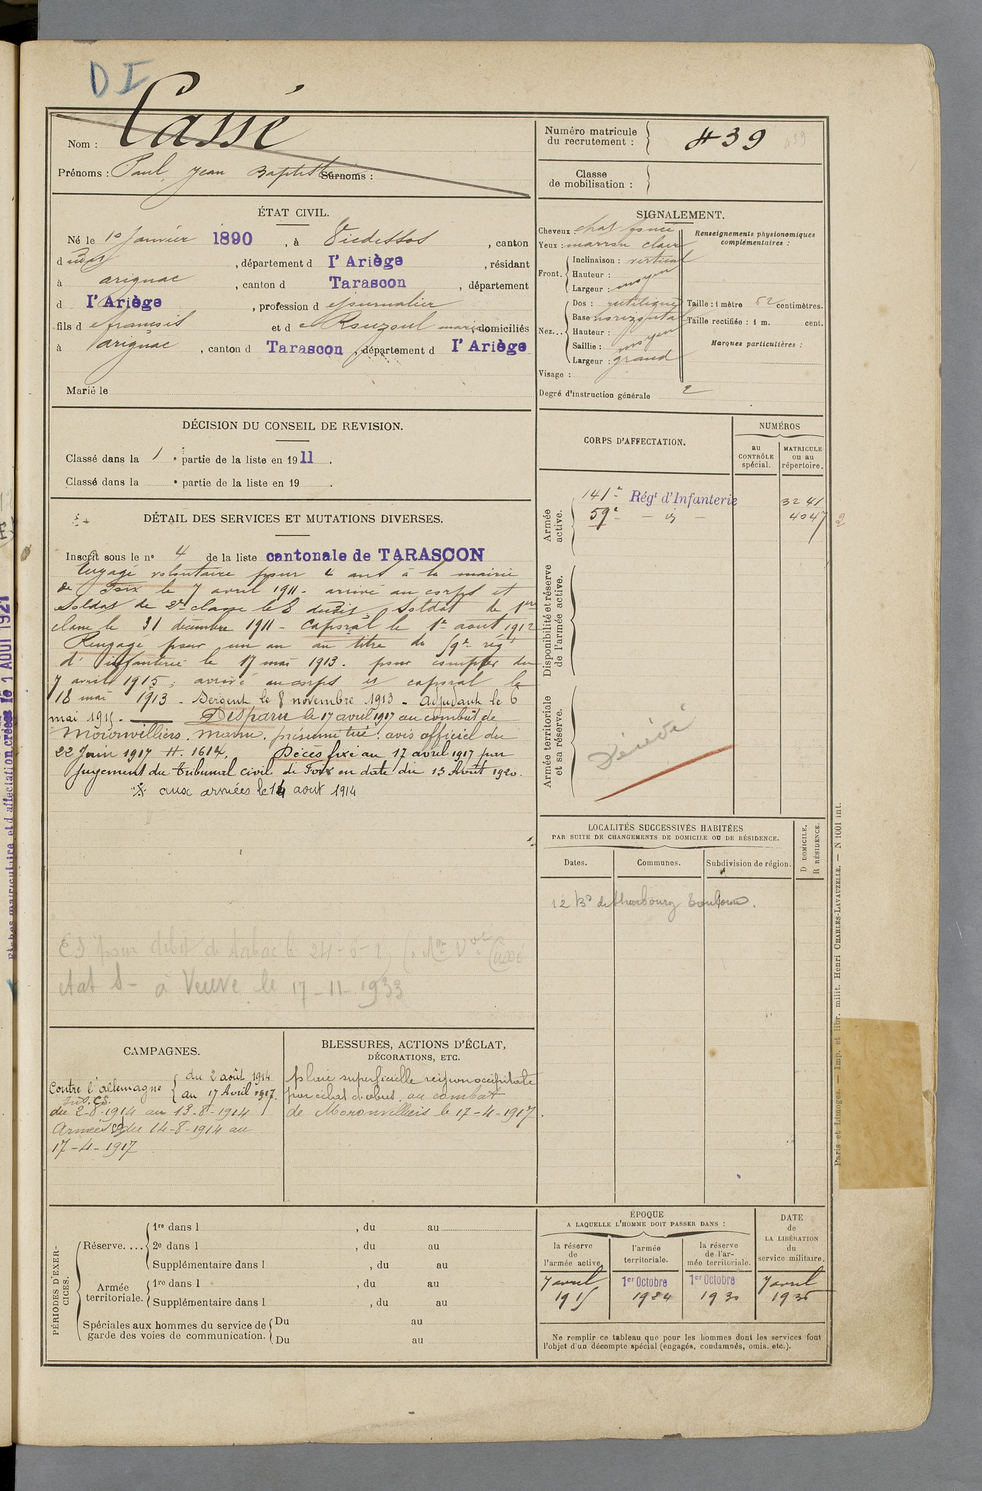 D I
Nom : Cassé
Prénoms : Paul, Jean Baptiste Surnoms :
Numéro matricule du recrutement : 439
Classe de mobilisation :
ÉTAT CIVIL.
Né le 10 Janvier 1890, à Vicdessos, canton
d udos, département d l'Ariège, résidant
à arignac, canton d Tarascon, département
d l'Ariège, profession d e journalier
fils d e françois et d e Rouzoul marie domiciliés
à arignac, canton d Tarascon, département d l'Ariège
Marié le
SIGNALEMENT.
Cheveux chat foncé
Yeux : marron clair
Front. Inclinaison : vertical
Hauteur : moyen
Largeur :
Nez... Dos : rectiligne
Base horizontal
Hauteur :
Saillie : moyen
Largeur : grand
Visage :
Degré d'instruction générale 2
Renseignements physionomiques complémentaires :
Taille : 1 mètre 62 centimètres.
Taille rectifiée : 1 m. cent.
Marques particulières :
DÉCISION DU CONSEIL DE REVISION.
Classé dans la 1 e partie de la liste en 1911.
Classé dans la e partie de la liste en 19 .
CORPS D'AFFECTATION.
NUMÉROS
AU CONTRÔLE spécial.
MATRICULE ou au répertoire.
Armée active.
141e Régt d'Infanterie 3241
59e — id — 4047
Disponibilité et réserve de l'armée active.
Armée territoriale et sa réserve.
Décédé
DÉTAIL DES SERVICES ET MUTATIONS DIVERSES.
Inscrit sous le n° 4 de la liste cantonale de TARASCON
Engagé volontaire pour 4 ans à la mairie
de Foix le 7 avril 1911. arrivé au corps et
soldat de 2e classe le 8 dudit. Soldat de 1ere
classe le 31 décembre 1911 - Caporal le 1er aout 1912
Rengagé pour un an au titre du 59e régt
d'infanterie le 17 mai 1913. pour compter du
7 avril 1915 ; arrivé au corps et caporal le
18 mai 1913 - Sergent le 8 novembre 1913 - Adjudant le 6
mai 1915. — Disparu le 17 avril 1917 au combat de
Moronvilliers. Marne. présumé tué. avis officiel du
22 Juin 1917 H. 1614. Décès fixé au 17 avril 1917 par
jugement du Tribunal civil de Foix en date du 13 Août 1920.
aux armées le 14 aout 1914
LOCALITÉS SUCCESSIVES HABITÉES
PAR SUITE DE CHANGEMENTS DE DOMICILE OU DE RÉSIDENCE.
Dates. Communes. Subdivision de région. D DOMICILE. R RÉSIDENCE.
12 Bd de Cherbourg Toulouse.
ES pour débit de tabac le
état S - à Veuve le 17-11-1933
CAMPAGNES.
Contre l'allemagne du 2 août 1914
au 17 Avril 1917.
Int. CS.
du 2-8-1914 au 13-8-1914
Armées du 14-8-1914 au
17-4-1917
BLESSURES, ACTIONS D'ÉCLAT,
DÉCORATIONS, ETC.
plaie superficielle région occipitale
par éclat d'obus au combat
de Moronvilliers le 17-4-1917.
PÉRIODES D'EXERCICES.
Réserve.... 1re dans l , du au
2e dans l , du au
Supplémentaire dans l , du au
Armée territoriale. 1re dans l , du au
Supplémentaire dans l , du au
Spéciales aux hommes du service de garde des voies de communication. Du au
Du au
ÉPOQUE
A LAQUELLE L'HOMME DOIT PASSER DANS :
la réserve de l'armée active
l'armée territoriale.
la réserve de l'armée territoriale.
DATE de LA LIBÉRATION du service militaire.
7 avril 1915
1er Octobre 1924
1er Octobre 1930
7 avril 1936
Ne remplir ce tableau que pour les hommes dont les services font
l'objet d'un décompte spécial (engagés, condamnés, omis, etc.).
Paris et Limoges. — Imp. et libr. milit. Henri CHARLES-LAVAUZELLE. — N 1001 int.